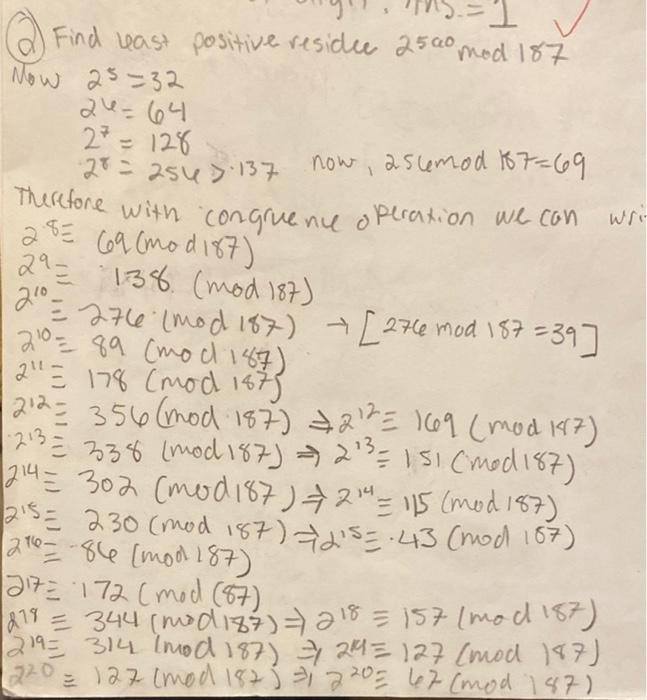 Ans.=1
② Find least positive residue 2⁵⁰⁰ mod 187
Now 2⁵ = 32
2⁶ = 64
2⁷ = 128
2⁸ = 256 > 137 now, 256 mod 187=69
Therefore with congruence operation we can wri
2⁸≡ 69 (mod 187)
2⁹≡ 138. (mod 187)
2¹⁰≡ 276 (mod 187) → [276 mod 187 = 39]
2¹⁰≡ 89 (mod 187)
2¹¹≡ 178 (mod 187)
2¹²≡ 356 (mod 187) ⇒ 2¹²≡ 169 (mod 187)
2¹³≡ 338 (mod 187) ⇒ 2¹³≡ 151 (mod 187)
2¹⁴≡ 302 (mod 187) ⇒ 2¹⁴≡ 115 (mod 187)
2¹⁵≡ 230 (mod 187) ⇒ 2¹⁵≡ .43 (mod 187)
2¹⁶≡ 86 (mod 187)
2¹⁷≡ 172 (mod (87)
2¹⁸≡ 344 (mod 187) ⇒ 2¹⁸ ≡ 157 (mod 187)
2¹⁹≡ 314 (mod 187) ⇒ 2¹⁹≡ 127 (mod 187)
2²⁰≡ 127 (mod 187) ⇒ 2²⁰≡ 67 (mod 187)